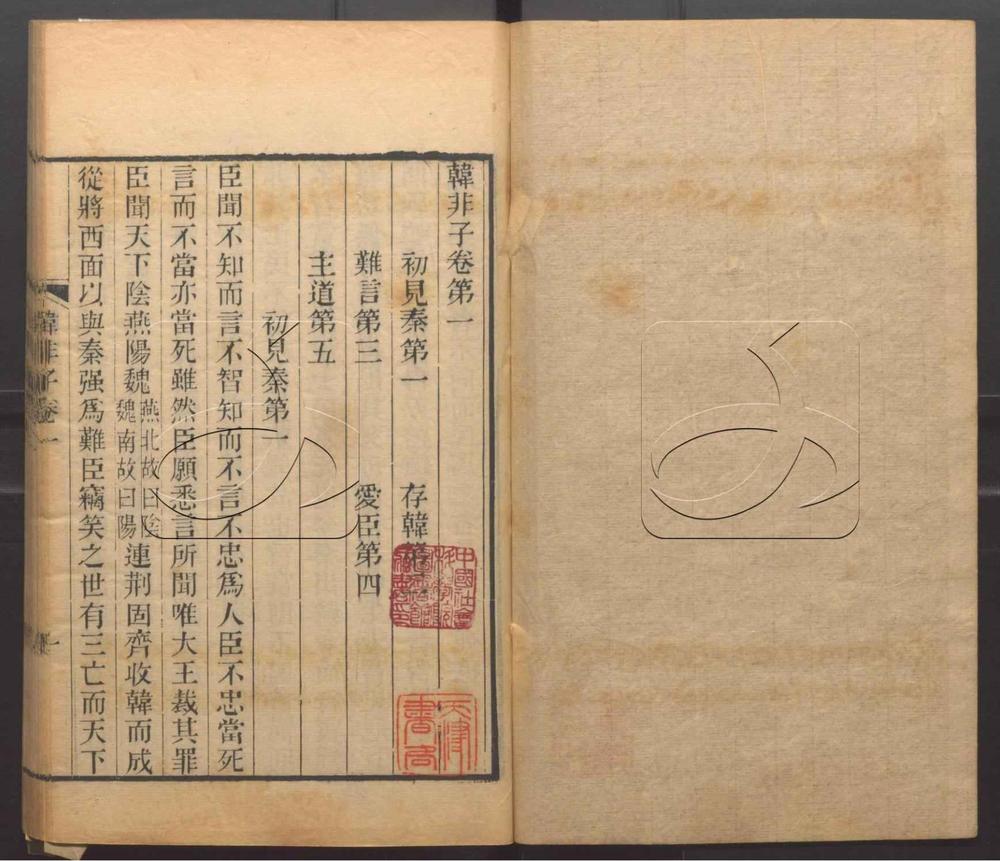 韓非子卷第一
初見秦第一　存韓第二
難言第三　愛臣第四
主道第五
初見秦第一
臣聞不知而言不智知而不言不忠爲人臣不忠當死
言而不當亦當死雖然臣願悉言所聞唯大王裁其罪
臣聞天下陰燕陽魏燕北故曰陰魏南故曰陽連荆固齊收韓而成
從將西面以與秦强爲難臣竊笑之世有三亡而天下
韓非子卷一
中國社會
天津
書店